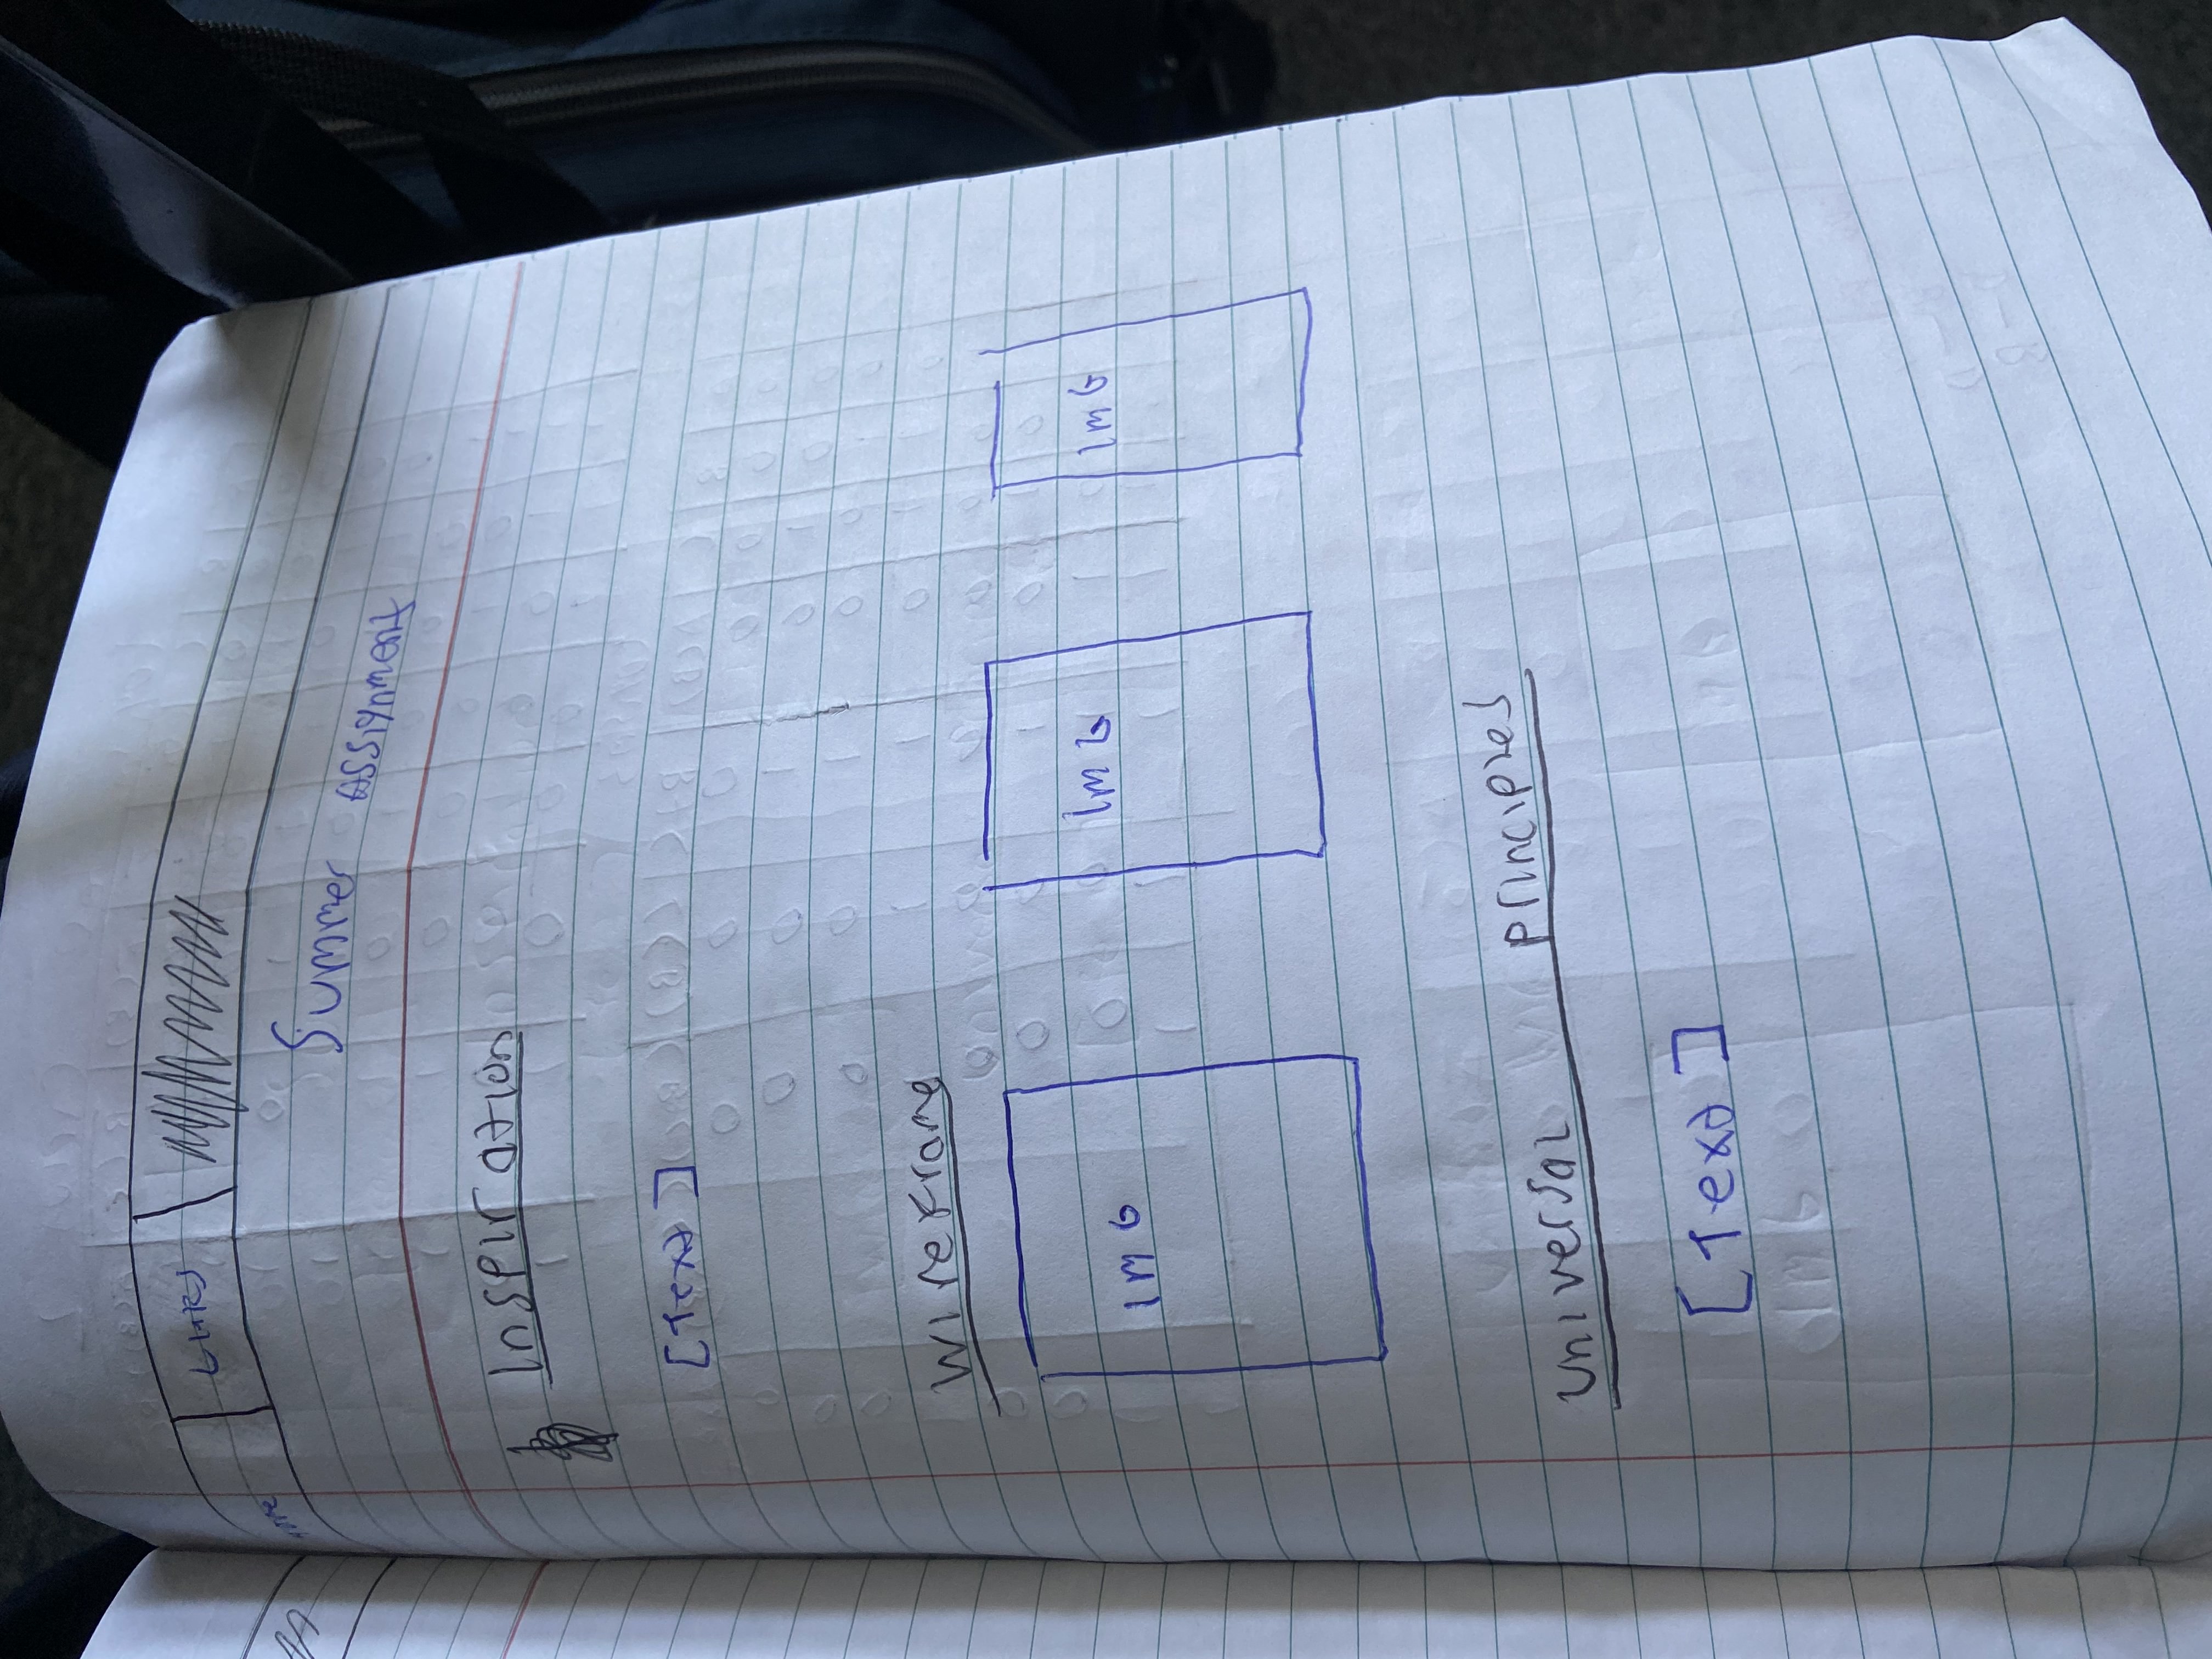 Home
Links
Summer Assignment
Inspiration
[Text]
Wireframe
IMG IMG IMG
Universal Principles
[Text]